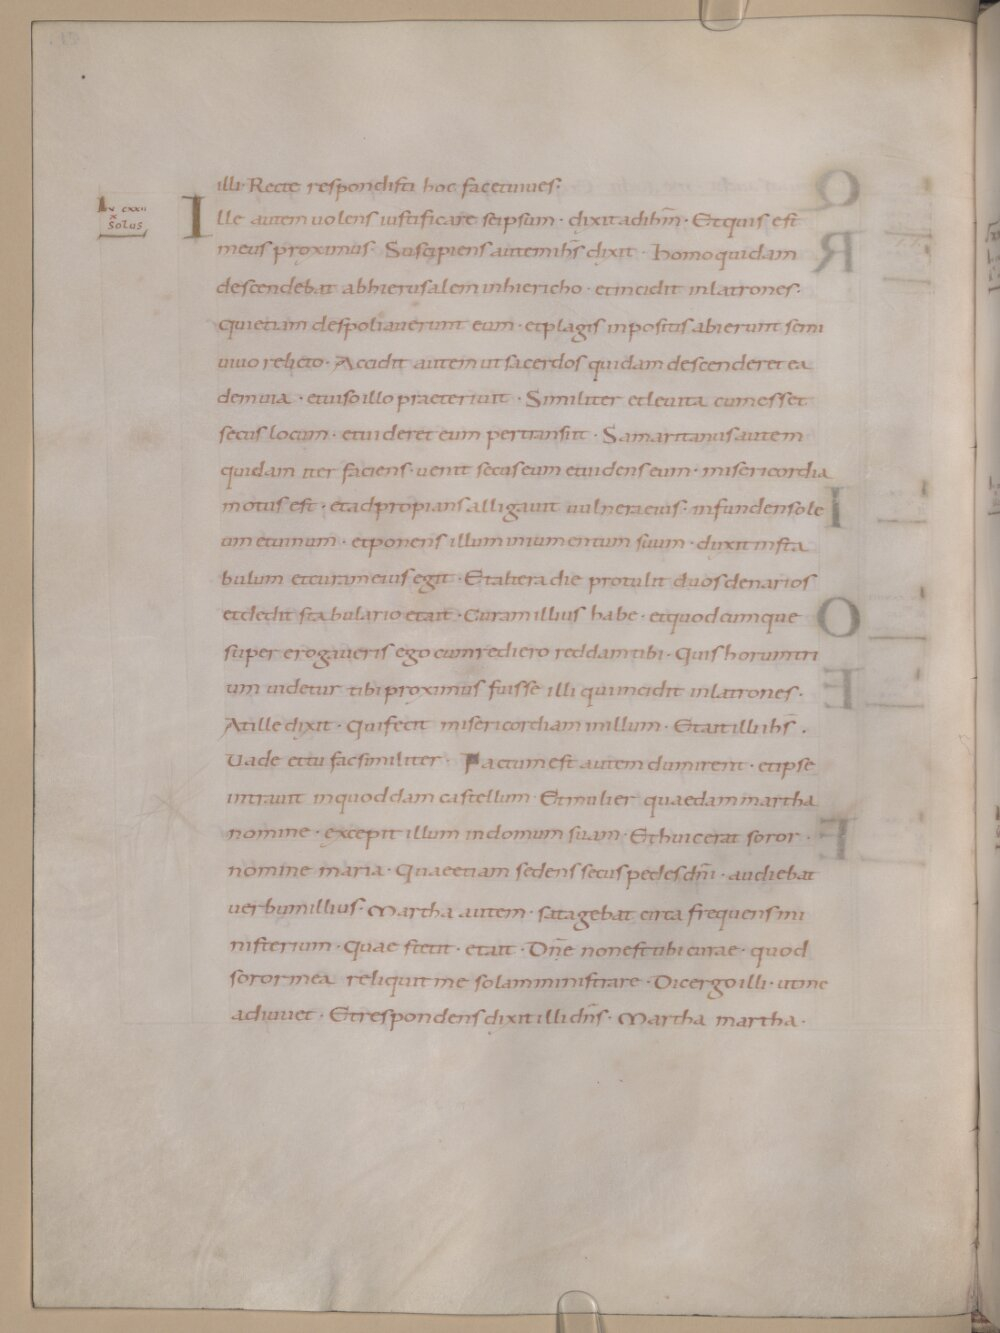 illi· Recte respondisti hoc facetuiues:
Lu CXXII
X
Solus
Ille autem uolens iustificare seipsum· dixit adihm̄· Et quis est
meus proximus· Suscipiens autem ihs̄ dixit· Homo quidam
descendebat abhierusalem inhiericho· et incidit inlatrones·
qui etiam despoliauerunt eum· et plagis inpositis abierunt semi
uiuo relicto· Accidit autem ut sacerdos quidam descenderet ea
dem uia· et uiso illo praeteriuit· Similiter et leuita cum esset
secus locum· et uideret eum pertransiit· Samaritanus autem
quidam iter faciens· uenit secus eum et uidens eum· misericordia
motus est· et adpropians alligauit uulnera eius· infundens ole
um et uinum· et ponens illum iniumentum suum· duxit insta
bulum et curam eius egit· Et altera die protulit duos denarios
et dedit stabulario et ait· Curam illius habe· et quodcumque
super erogaueris ego cum rediero reddam tibi· Quis horum tri
um uidetur tibi proximus fuisse illi qui incidit inlatrones·
At ille dixit· Qui fecit misericordiam inillum· Et ait illi ihs̄·
Uade et tu fac similiter· Factum est autem dum irent· et ipse
intrauit inquoddam castellum· Et mulier quaedam martha
nomine· excepit illum indomum suam· Et huic erat soror·
nomine maria· Quae etiam sedens secus pedes dn̄i· audiebat
uerbum illius· Martha autem· satagebat circa frequens mi
nisterium· Quae stetit· et ait· Dn̄e non est tibi curae· quod
soror mea reliquit me solam ministrare· Dic ergo illi· ut me
adiuuet· Et respondens dixit illi dn̄s· Martha martha·